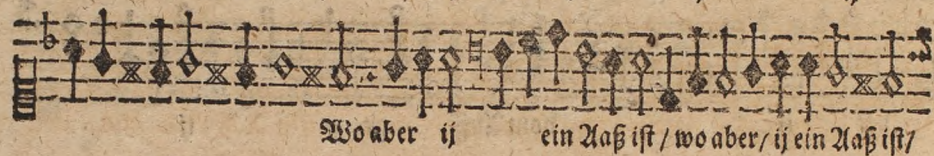 Wo aber ij ein Aaß ist / wo aber / ij ein Aaß ist /